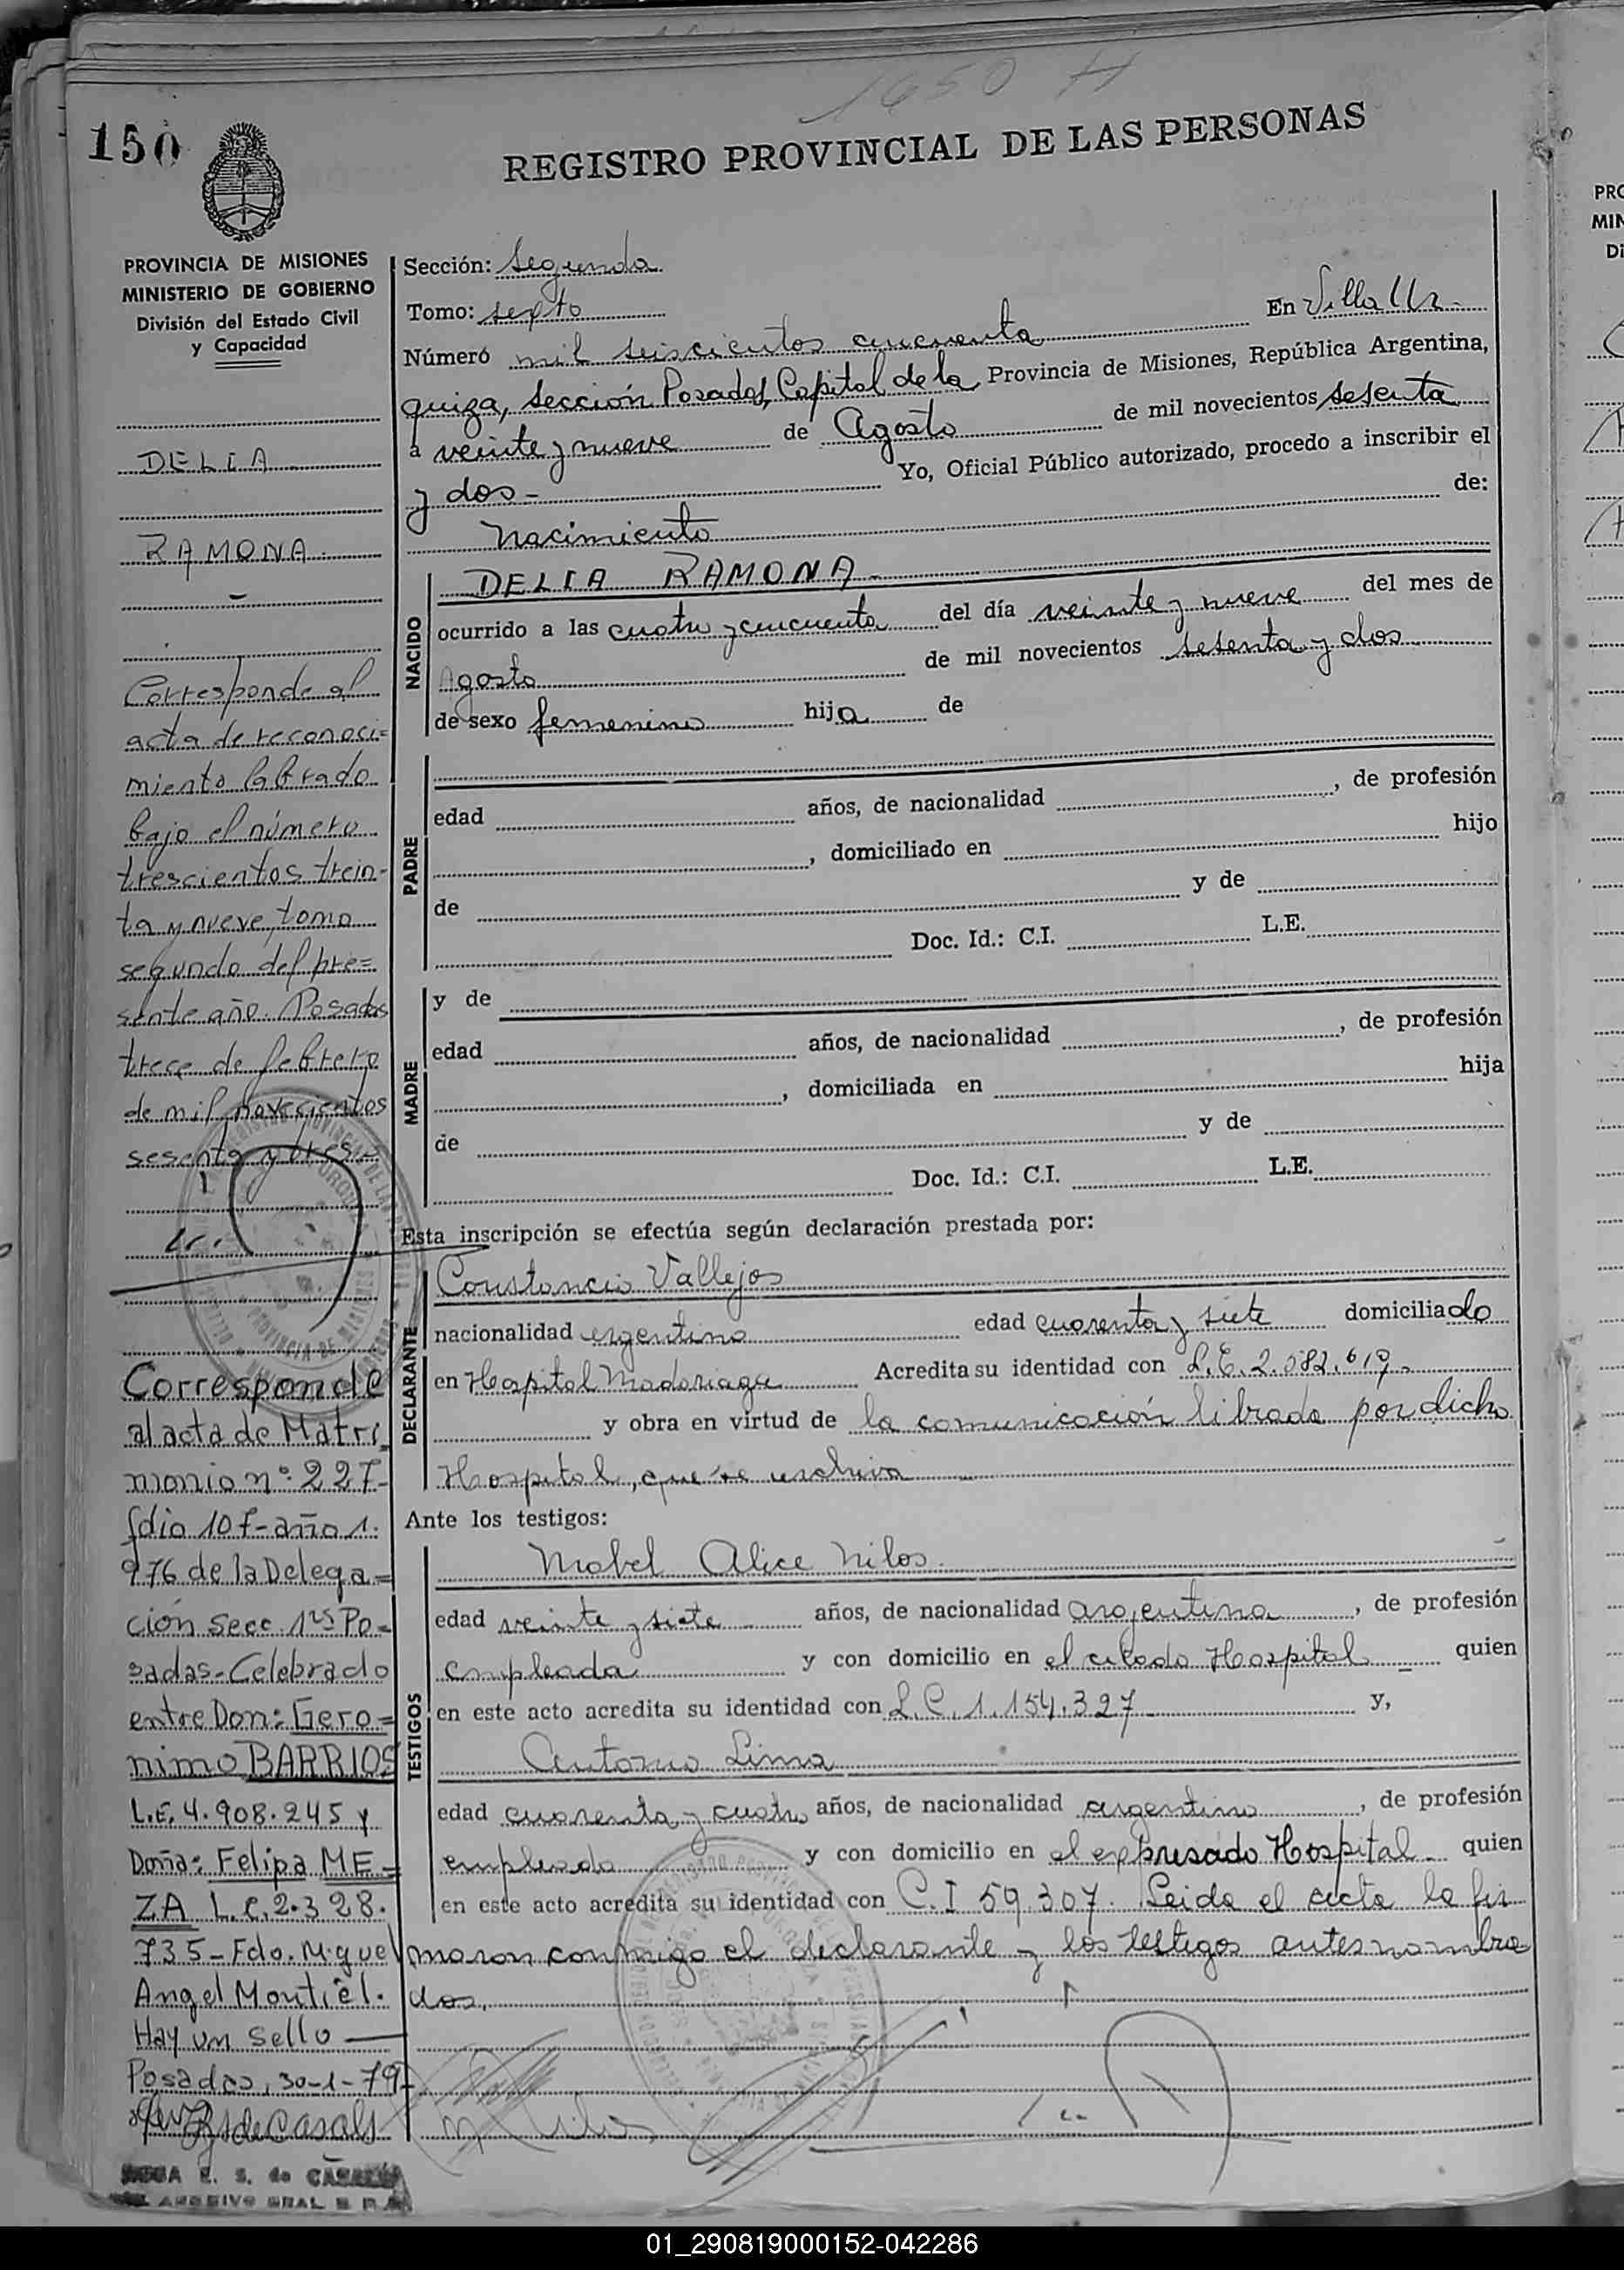 1650 H
150
REGISTRO PROVINCIAL DE LAS PERSONAS
PROVINCIA DE MISIONES
MINISTERIO DE GOBIERNO
División del Estado Civil
y Capacidad
DELIA
RAMONA
Corresponde al
acta de reconoci=
miento labrado
bajo el número
trescientos trein-
ta y nueve, tomo
segundo del pre=
sente año. Posadas
trece de febrero
de mil novecientos
sesenta y tres.-
Corresponde
al acta de Matri
monio nº 227-
folio 107-año 1.
976 de la Delega=
ción Secc. 1ra Po=
sadas-Celebrado
entre Don: Gero=
nimo BARRIOS
L.E. 4.908.245 y
Doña: Felipa ME=
ZA L.C. 2.328.
735-Fdo. Miguel
Angel Montiel.
Hay un sello
Posadas, 30-1-79-
Sección: Segunda
Tomo: sexto
En Villa Ur-
Número mil seiscientos cincuenta
quiza, sección Posadas, Capital de la Provincia de Misiones, República Argentina,
a veinte y nueve de Agosto de mil novecientos sesenta
y dos- Yo, Oficial Público autorizado, procedo a inscribir el
Nacimiento de:
NACIDO
DELIA RAMONA-
ocurrido a las cuatro y cincuenta del día veinte y nueve del mes de
Agosto de mil novecientos sesenta y dos
de sexo femenino hija de
PADRE
edad años, de nacionalidad , de profesión
, domiciliado en hijo
de y de
Doc. Id.: C.I. L.E.
MADRE
y de
edad años, de nacionalidad , de profesión
, domiciliada en hija
de y de
Doc. Id.: C.I. L.E.
Esta inscripción se efectúa según declaración prestada por:
DECLARANTE
Constancio Vallejos
nacionalidad argentino edad cuarenta y siete domiciliado
en Hospital Madariaga Acredita su identidad con L.E. 2.082.619.
y obra en virtud de la comunicación librada por dicho
Hospital, que se archiva
Ante los testigos:
TESTIGOS
Mabel Alice Nilos
edad veinte y siete años, de nacionalidad argentina , de profesión
empleada y con domicilio en el citado Hospital quien
en este acto acredita su identidad con L.C. 1.154.327 y,
Antonio Lima
edad cuarenta y cuatro años, de nacionalidad argentino , de profesión
empleado y con domicilio en el expresado Hospital- quien
en este acto acredita su identidad con C.I 59.307. Leida el acta la fir
maron conmigo el declarante y los testigos antes nombra
dos.
01_290819000152-042286